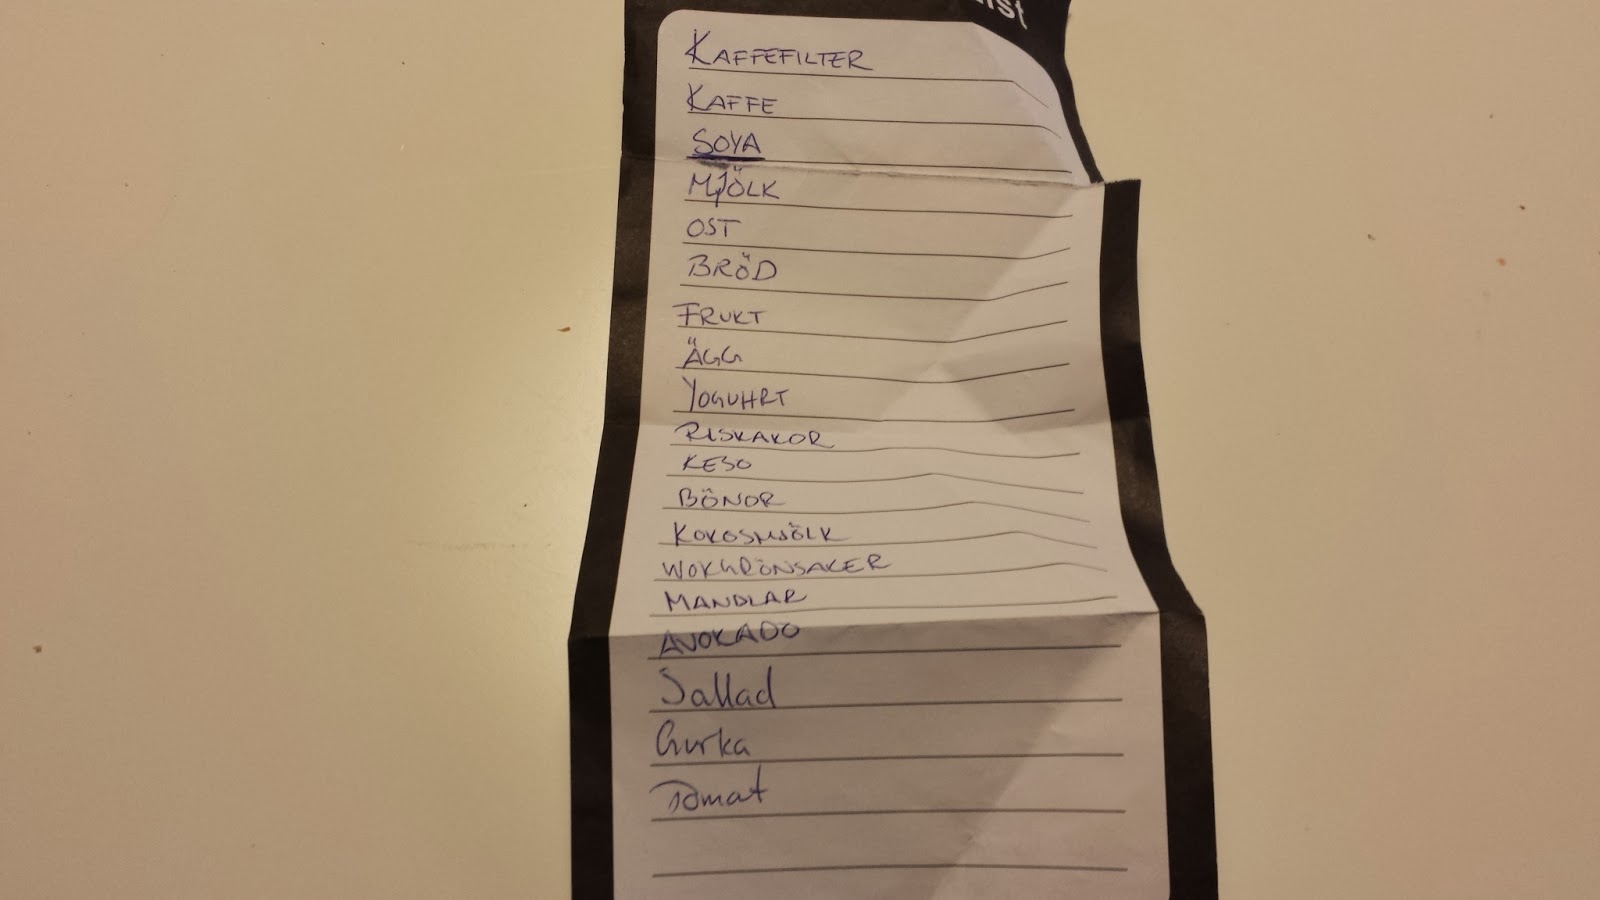 Kaffefilter
Kaffe
Soya
Mjölk
Ost
Bröd
Frukt
Ägg
Yoguhrt
Riskakor
Keso
Bönor
Kokosmjölk
Wokgrönsaker
Mandlar
Avokado
Sallad
Gurka
Tomat